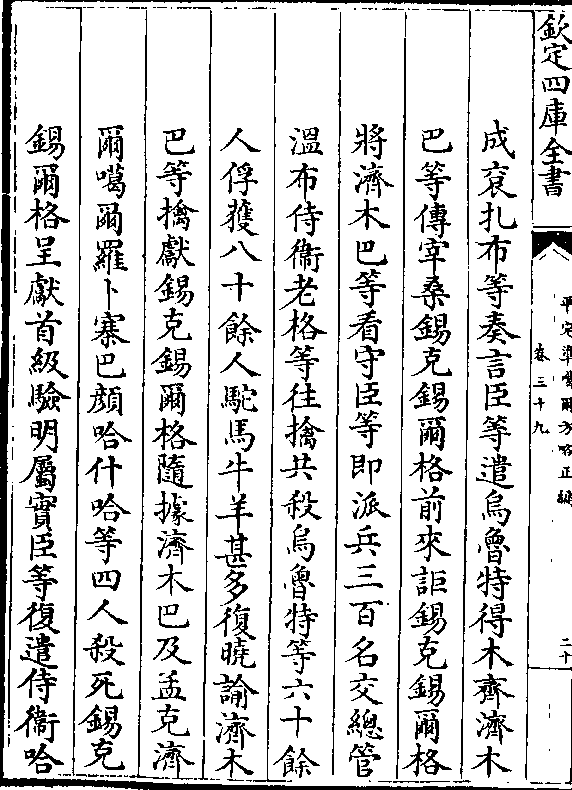 欽定四庫全書
平定準噶爾方略正編
卷三十九
二十
成衮扎布等奏言臣等遣烏魯特得木齊濟木
巴等傳宰桑錫克錫爾格前來詎錫克錫爾格
將濟木巴等看守臣等即派兵三百名交總管
溫布侍衞老格等往擒共殺烏魯特等六十餘
人俘獲八十餘人駝馬牛羊甚多復曉諭濟木
巴等擒獻錫克錫爾格隨據濟木巴及孟克濟
爾噶爾羅卜寨巴顔哈什哈等四人殺死錫克
錫爾格呈獻首級驗明屬實臣等復遣侍衞哈